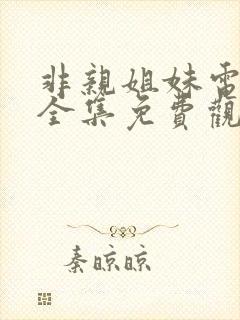 非親姐妹電
全集免費觀
秦晾晾